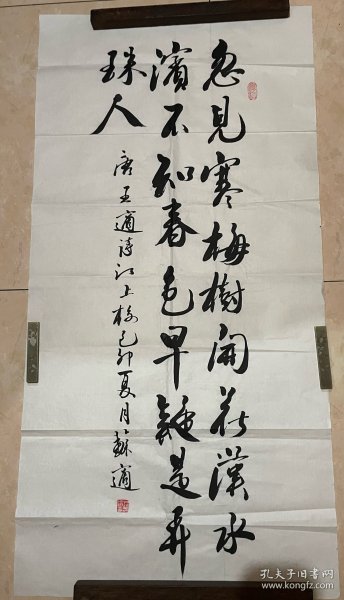 忽见寒梅樹開花漢水
濱不知春色早疑是弄
珠人
唐王適诗江上梅己卯夏月蘇適
孔夫子旧书网